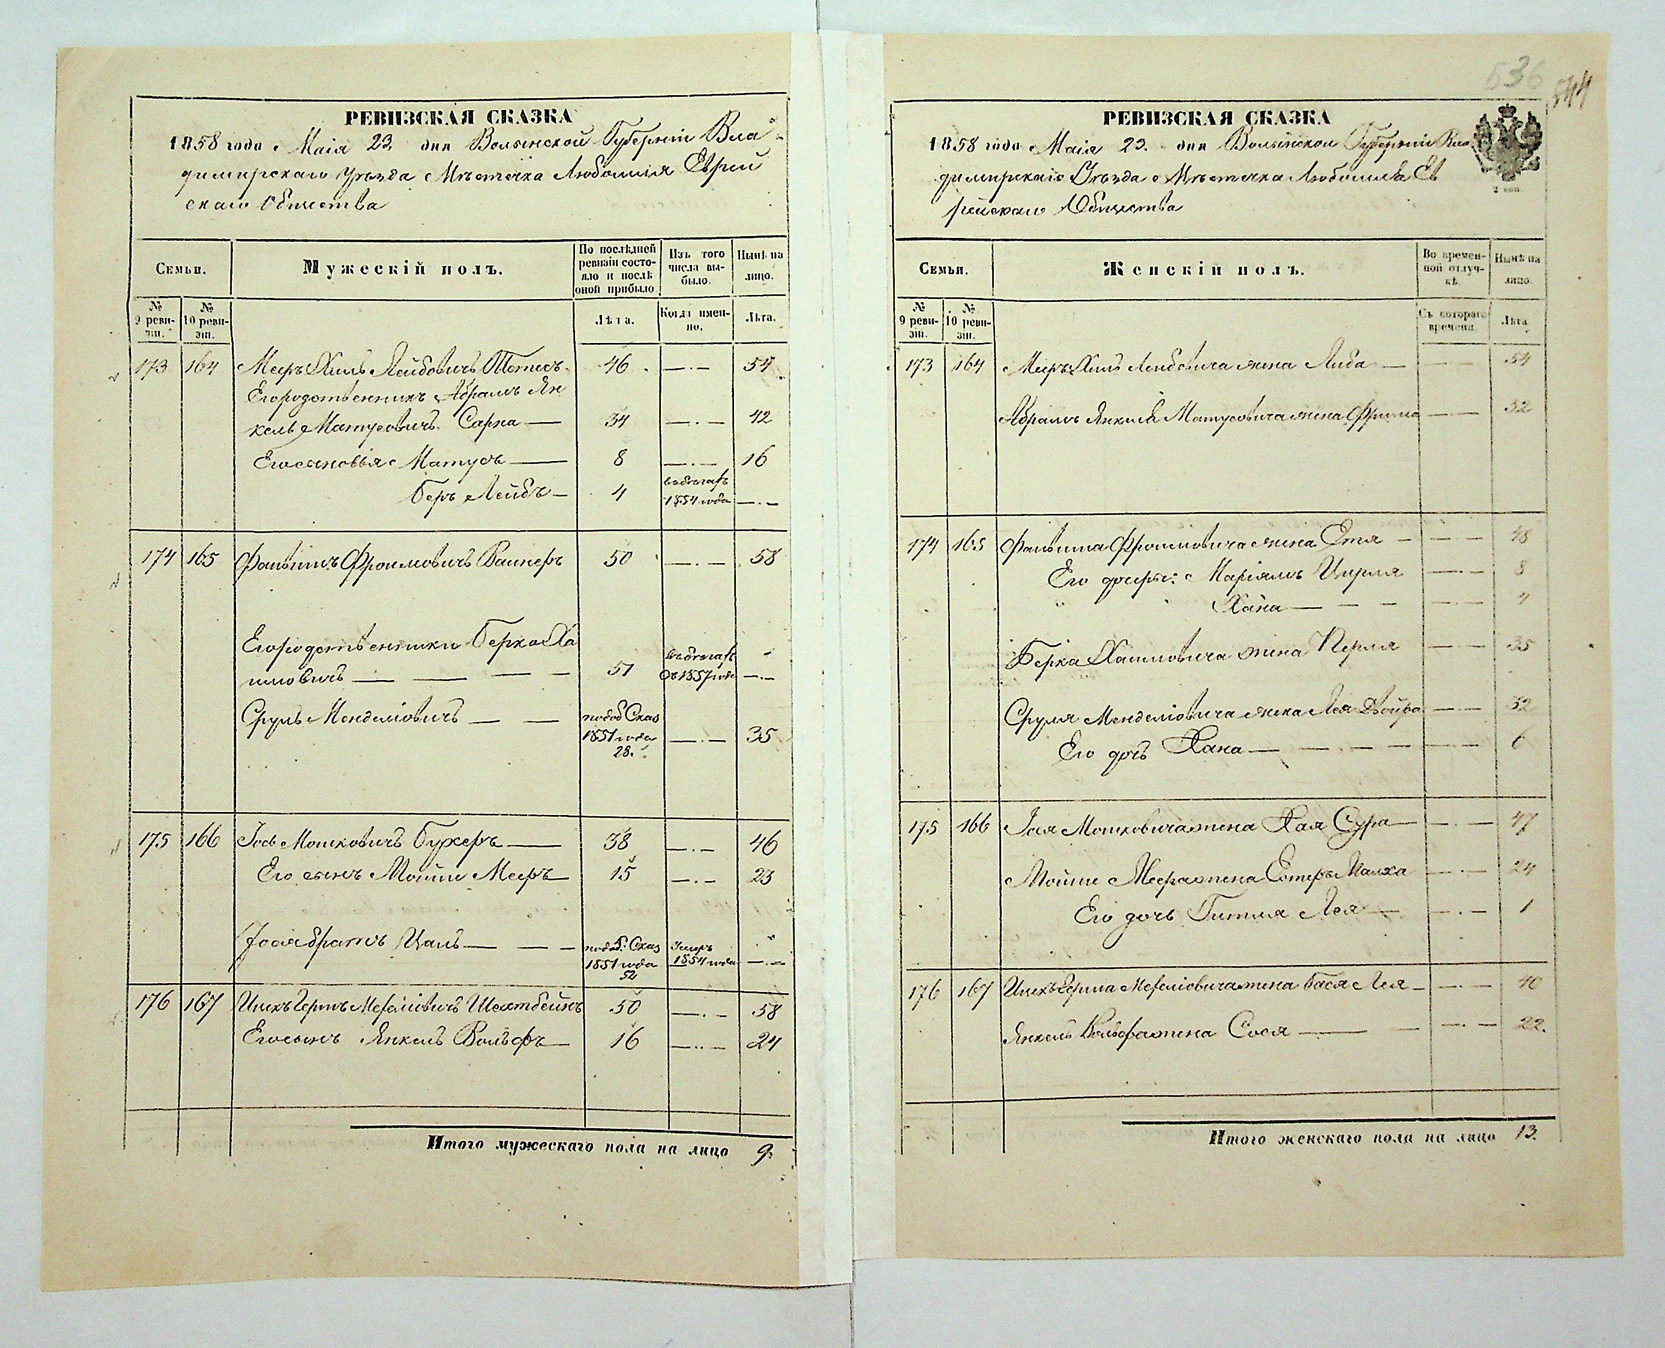 РЕВИЗСКАЯ СКАЗКА
1858 года Маія 23 дня Волынской Губерніи Вла-
димирскаго Уѣзда Мѣстечка Любомля Еврей
скаго Общества
Семьи.
Мужескій полъ.
По послѣдней ревизіи состо-
яло и послѣ оной прибыло
Изъ того числа вы-
было.
Нынѣ на лицо.
№ 9 реви-
зіи.
№ 10 реви-
зіи.
Лѣта.
Когда имен-
но.
Лѣта.
173 164 Мееръ Хиль Лейбовичъ 46 — . — 54
Его родственникъ Абрамъ Ян
кель Матусовичъ Сарна — 34 — . — 42
Его сыновья Матусъ — 8 — . — 16
Беръ Лейбъ — 4 въ бѣгахъ 1854 года — . —
174 165 Файвишъ Фроимовичъ Вайнеръ 50 — . — 58
Его родственники Берко Ха
имовичъ — — — — 51 въ бѣгахъ съ 1857 года — . —
Сруль Менделіовичъ — — по доб. Сказ 1851 года 28. — . — 35
175 166 Іось Мошковичъ Бухеръ — 38 — . — 46
Его сынъ Мойше Мееръ — 15 — . — 23
Іося братъ Цаль — — — по доб. Сказ 1851 года 52 Умеръ 1854 года — . —
176 167 Ицкъ Герть Мефоліовичъ Шехтбейнъ 50 — . — 58
Его сынъ Янкель Вольфъ — 16 — . — 24
Итого мужескаго пола на лицо 9.
536
544
РЕВИЗСКАЯ СКАЗКА
1858 года Маія 23. дня Волынской Губерніи Вла
димирскаго Уѣзда Мѣстечка Любомля Ев
рейскаго Общества
2 коп.
Семьи.
Женскій полъ.
Во времен-
ной отлуч-
кѣ.
Нынѣ на лицо.
№ 9 реви-
зіи.
№ 10 реви-
зіи.
Съ котораго времени.
Лѣта
173 164 Мееръ Хиля Лейбовича жена Либа — — . — 54
Абрамъ Янкеля Матусовича жена Фрима — . — 32
174 165 Файвиша Фроимовича жена Етя — — . — 48
Его дочери: Маріямъ Цирля — . — 8
Хана — — — — . — 4
Берка Хаимовича жена Перля — . — 35
Сруля Менделіовича жена Лея Двойра — . — 32
Его дочь Хана — — — — — . — 6
175 166 Іося Мошковича жена Хая Сура — — . — 47
Мойше Меера жена Естеръ Малка — . — 24
Его дочь Гитля Лея — — . — 1
176 167 Ицкъ Герша Мефоліовича жена Бася Лея — — . — 40
Янкель Вольфа жена Сося — — — . — 22.
Итого женскаго пола на лицо 13.